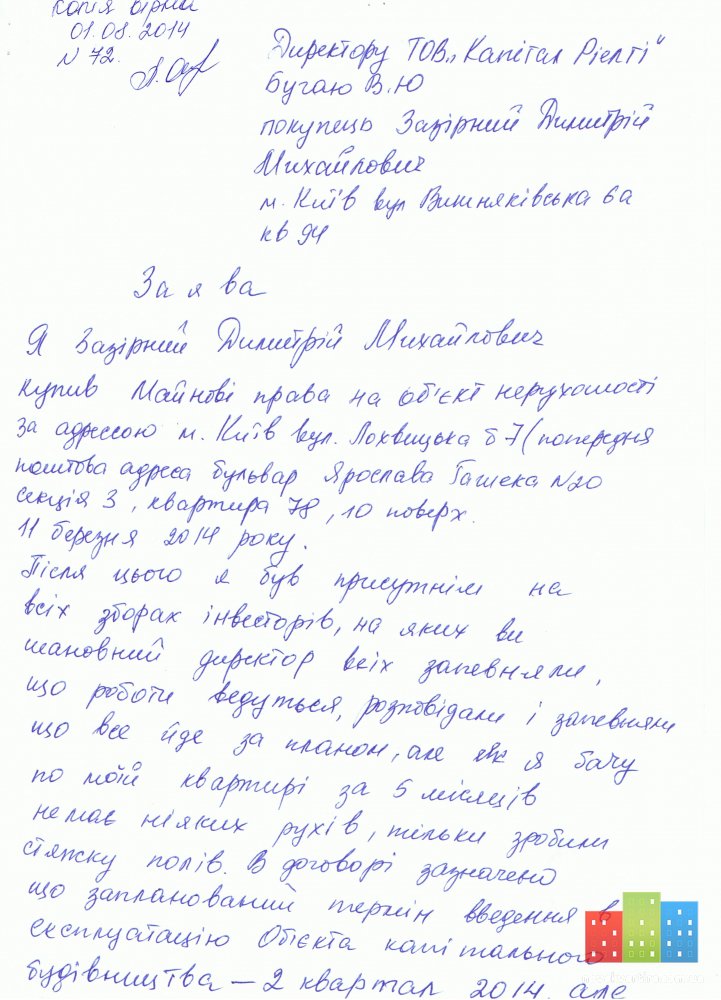 копія вірна
01.08.2014
N 72.
Директору ТОВ „Капітал Ріелті"
Бугаю В.Ю
покупець Зазірний Димитрій
Михайлович
м. Київ вул Вишняківська 6а
кв 94
Заява
Я Зазірний Димитрій Михайлович
купив Майнові права на об'єкт нерухомості
за адрессою м. Київ вул. Лохвицька б 7 (попередня
поштова адреса бульвар Ярослава Гашека N20
секція 3, квартира 78, 10 поверх.
11 березня 2014 року.
Після цього я був присутнім на
всіх зборах інвесторів, на яких ви
шановний директор всіх запевняли,
що роботи ведуться, розповідали і запевняли
що все йде за планом, але я бачу
по моїй квартирі за 5 місяців
немає ніяких рухів, тільки зробили
стяжку полів. В договорі зазначено
що запланований термін введення в
експлуатацію Об'єкта капітального
будівництва – 2 квартал 2014. але